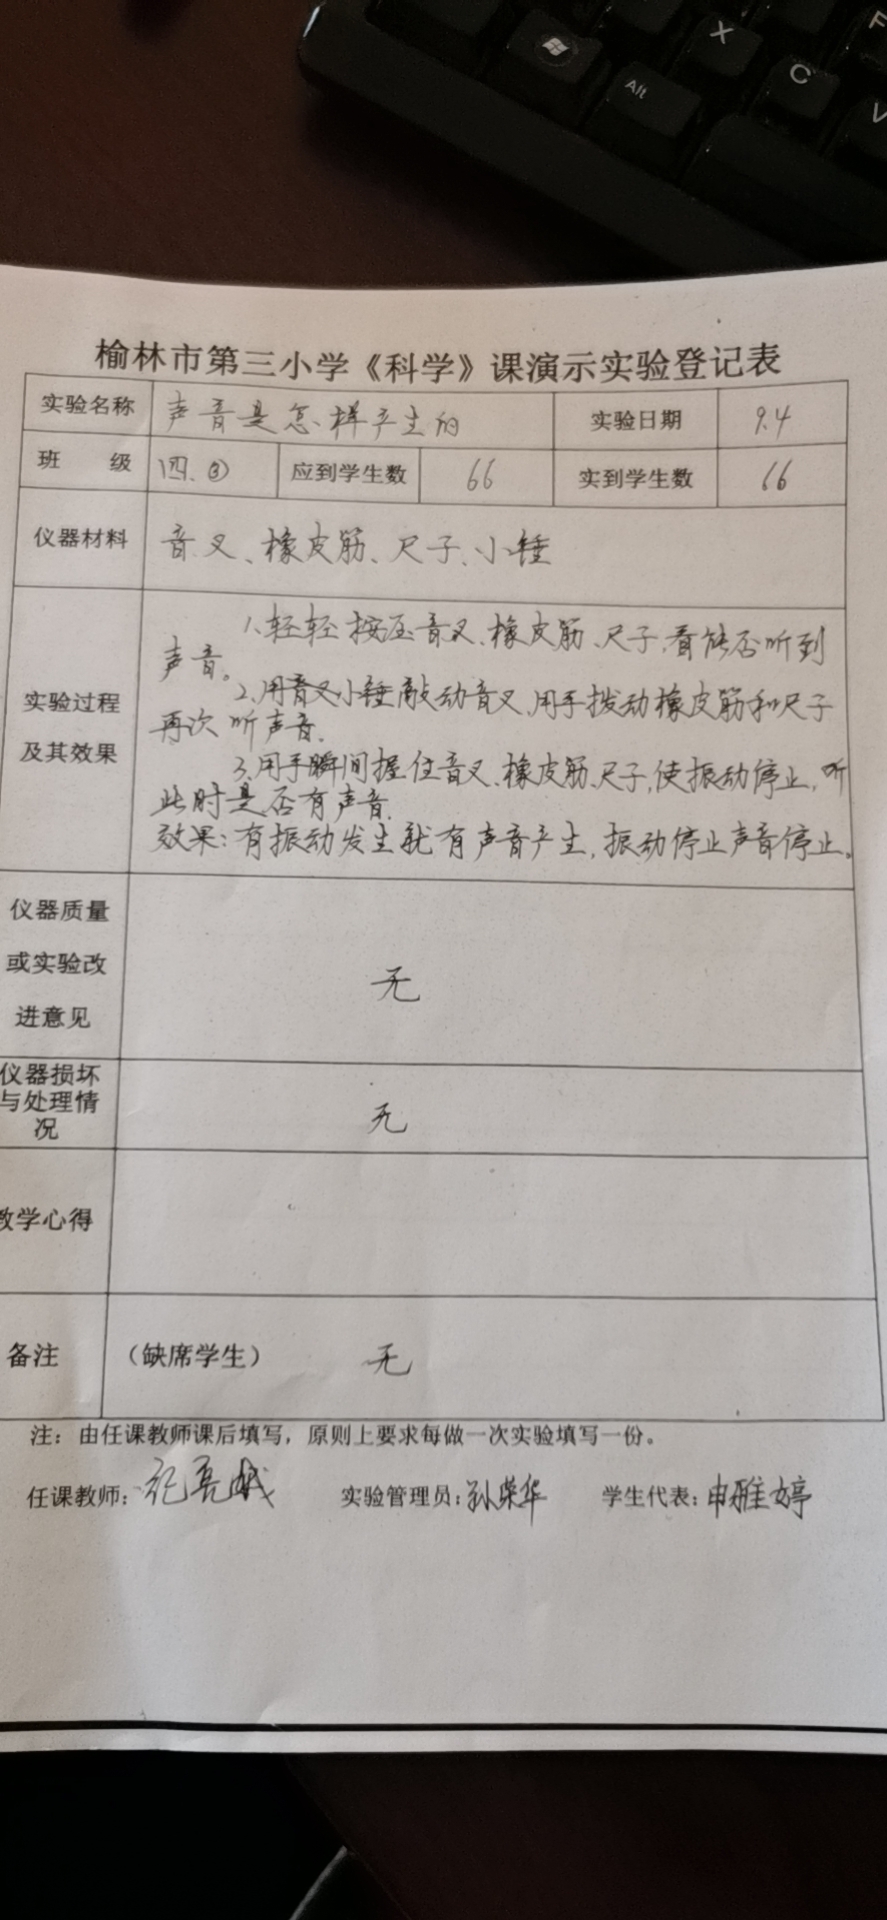 X
F
Alt
C
V
榆林市第三小学《科学》课演示实验登记表
实验名称 声音是怎样产生的 实验日期 9.4
班 级 四.③ 应到学生数 66 实到学生数 66
仪器材料 音叉、橡皮筋、尺子、小锤
1、轻轻按压音叉、橡皮筋、尺子,看能否听到
声音。
2、用小锤敲动音叉,用手拨动橡皮筋和尺子
实验过程
再次听声音.
及其效果
3、用手瞬间握住音叉、橡皮筋、尺子,使振动停止,听
此时是否有声音.
效果:有振动发生就有声音产生,振动停止声音停止。
仪器质量
或实验改
进意见
无
仪器损坏
与处理情
况
无
教学心得
备注 (缺席学生) 无
注:由任课教师课后填写,原则上要求每做一次实验填写一份。
任课教师: 实验管理员:孙荣华 学生代表:申雅婷